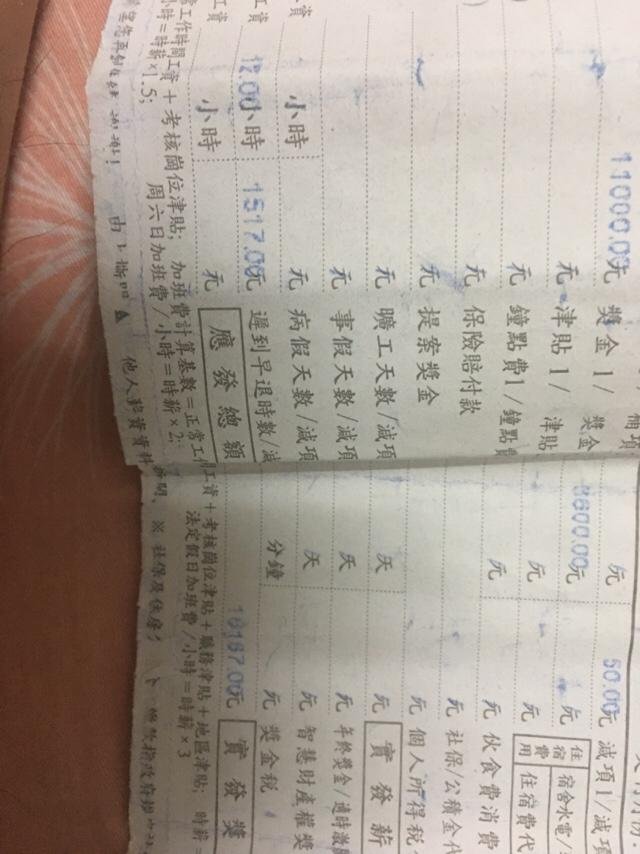 11000.00元 獎金1/獎金 元 50.00元 減項1/減項
元 津貼1/津貼 3600.00元 元 住宿費用 宿舍水電/
元 鐘點費1/鐘點費 元 元 住宿費代
元 保險賠付款 元 元 伙食費消費
元 提案獎金 元 社保/公積金代
元 曠工天數/減項 天 元 個人所得稅
元 事假天數/減項 天 元 實發薪
資 小時 元 病假天數/減項 天 元 年終獎金/適時激
工資 12.00小時 1517.00元 遲到早退時數/減 分鐘 元 智慧財產權獎
工資 小時 元 應發總額 元 獎金稅
16167.00元 實發獎
常工作時間工資+考核崗位津貼; 加班費計算基數=正常工 間工資+考核崗位津貼+職務津貼+地區津貼; 時薪=
小時=時薪×1.5; 周六日加班費/小時=時薪×2; 法定假日加班費/小時=時薪×3
他人薪資資料 ※社保及住房